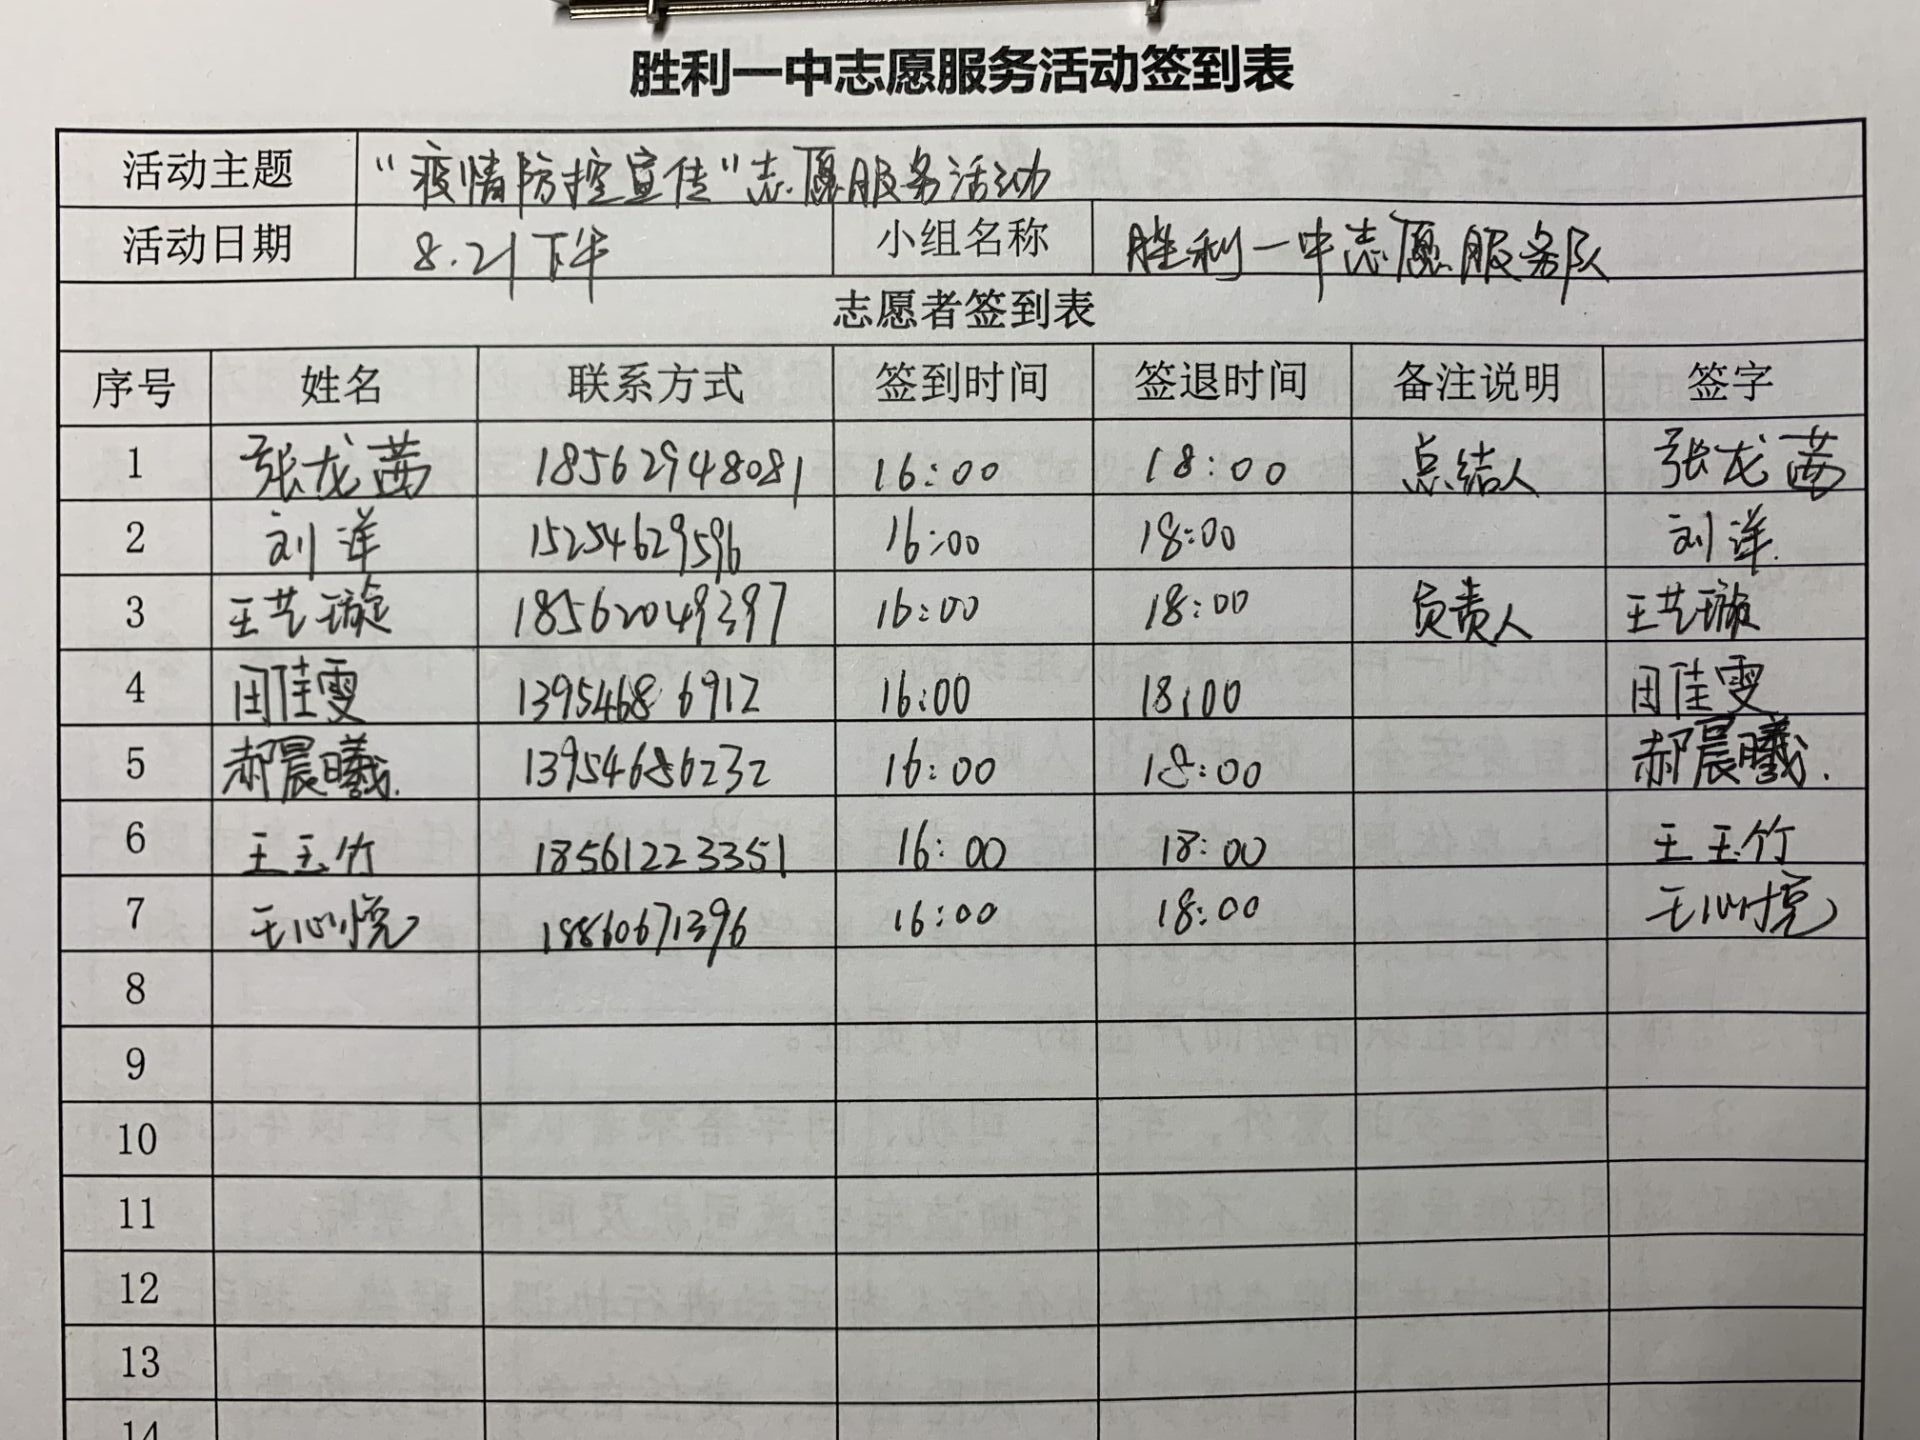 胜利一中志愿服务活动签到表
活动主题 “疫情防控宣传”志愿服务活动
活动日期 8.21下午 小组名称 胜利一中志愿服务队
志愿者签到表
序号 姓名 联系方式 签到时间 签退时间 备注说明 签字
1 张龙茜 18562948081 16:00 18:00 总结人 张龙茜
2 刘洋 15254629596 16:00 18:00 刘洋.
3 王艺璇 18562049397 16:00 18:00 负责人 王艺璇
4 田佳雯 13954686912 16:00 18:00 田佳雯
5 郝晨曦. 13954686232 16:00 18:00 郝晨曦.
6 王玉竹 18561223351 16:00 18:00 王玉竹
7 王心悦 18860671396 16:00 18:00 王心悦
8
9
10
11
12
13
14